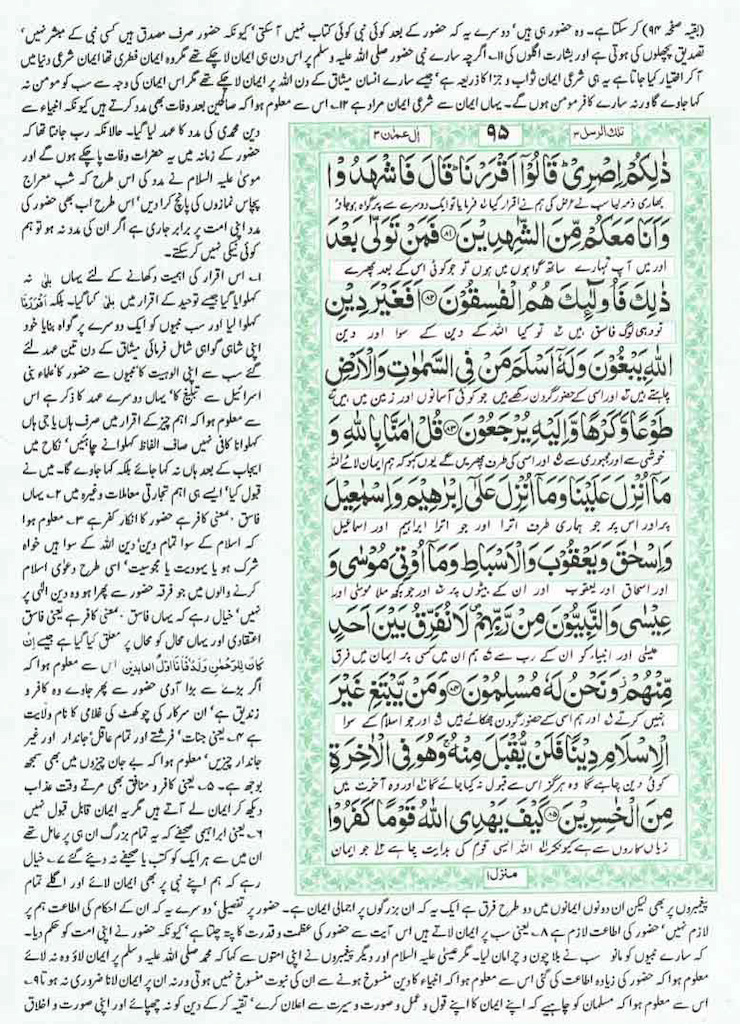 (بقیہ صفحہ ۹۴) کر سکتا ہے۔ وہ حضور ہی ہیں' دوسرے یہ کہ حضور کے بعد کوئی نبی کوئی کتاب نہیں آ سکتی' کیونکہ حضور صرف مصدق ہیں کسی نبی کے مبشر نہیں'
تصدیق پچھلوں کی ہوتی ہے اور بشارت اگلوں کی ۱۱۔ اگرچہ سارے نبی حضور صلی اللہ علیہ وسلم پر اس دن ہی ایمان لا چکے تھے مگر وہ ایمان فطری تھا ایمان شرعی دنیا میں
آ کر اختیار کیا جاتا ہے یہ ہی شرعی ایمان ثواب و جزا کا ذریعہ ہے' جیسے سارے انسان میثاق کے دن اللہ پر ایمان لا چکے تھے مگر اس ایمان کی وجہ سے سب کو مومن نہ
کہا جاوے گا ورنہ سارے کافر مومن ہوں گے۔ یہاں ایمان سے شرعی ایمان مراد ہے ۱۲۔ اس سے معلوم ہوا کہ صالحین بعد وفات بھی مدد کرتے ہیں کیونکہ انبیاء سے
دین محمدی کی مدد کا عہد لیا گیا۔ حالانکہ رب جانتا تھا کہ
حضور کے زمانہ میں یہ حضرات وفات پا چکے ہوں گے اور
موسیٰ علیہ السلام نے مدد کی اس طرح کہ شب معراج
پچاس نمازوں کی پانچ کرا دیں' اس طرح اب بھی حضور کی
مدد اپنی امت پر برابر جاری ہے اگر ان کی مدد نہ ہو تو ہم
کوئی نیکی نہیں کر سکتے۔
۱۔ اس اقرار کی اہمیت دکھانے کے لئے یہاں بلی نہ
کہلوایا گیا جیسے توحید کے اقرار میں بلی کہا گیا۔ بلکہ اَقْرَرْنَا
کہلوا لیا اور سب نبیوں کو ایک دوسرے پر گواہ بنایا خود
اپنی شاہی گواہی شامل فرمائی میثاق کے دن تین عہد لئے
گئے سب سے اپنی الوہیت کا' نبیوں سے حضور کا' علماء بنی
اسرائیل سے تبلیغ کا' یہاں دوسرے عہد کا ذکر ہے اس
سے معلوم ہوا کہ اہم چیز کے اقرار میں صرف ہاں یا جی ہاں
کہلوانا کافی نہیں صاف الفاظ کہلوانے چاہئیں' نکاح میں
ایجاب کے بعد ہاں نہ کہا جائے بلکہ کہا جاوے گا۔ میں نے
قبول کیا' ایسے ہی اہم تجارتی معاملات وغیرہ میں ۲۔ یہاں
فاسق بمعنی کافر ہے حضور کا انکار کفر ہے ۳۔ معلوم ہوا
کہ اسلام کے سوا تمام دین' دین اللہ کے سوا ہیں خواہ
شرک ہو یا یہودیت یا مجوسیت' اسی طرح دعویٰ اسلام
کرنے والوں میں جو فرقہ حضور سے پھرا ہو وہ دین الٰہی پر
نہیں' خیال رہے کہ یہاں فاسق بمعنی کافر ہے یعنی فاسق
اعتقادی اور یہاں محال کو محال پر معلق کیا گیا ہے جیسے اِنْ
كَانَ لِلرَّحْمٰنِ وَلَدٌ فَاَنَا اَوَّلُ الْعَابِدِیْنَ اس سے معلوم ہوا کہ
اگر بڑے سے بڑا آدمی حضور سے پھر جاوے وہ کافر و
زندیق ہے' ان سرکار کی چوکھٹ کی غلامی کا نام ولایت
ہے ۴۔ یعنی جنات' فرشتے اور تمام عاقل' جاندار اور غیر
جاندار چیزیں' معلوم ہوا کہ بے جان چیزوں میں بھی سمجھ
بوجھ ہے۔ ۵۔ یعنی کافر و منافق بھی مرتے وقت عذاب
دیکھ کر ایمان لے آتے ہیں مگر یہ ایمان قابل قبول نہیں
۶۔ یعنی ابراہیمی صحیفے کہ یہ تمام بزرگ ان ہی پر عامل تھے
ان میں سے ہر ایک کو کتب یا صحیفے نہ دیئے گئے ۷۔ خیال
رہے کہ ہم اپنے نبی پر بھی ایمان لائے اور اگلے تمام
تلك الرسل ۳
۹۵
اٰل عمران ۳
ذٰلِكُمْ اِصْرِیْ ؕ قَالُوْۤا اَقْرَرْنَا ؕ قَالَ فَاشْهَدُوْا
بھاری ذمہ لیا سب نے عرض کی ہم نے اقرار کیا فرمایا تو ایک دوسرے پر گواہ ہو جاؤ
وَ اَنَا مَعَكُمْ مِّنَ الشّٰهِدِیْنَ ۸۱ فَمَنْ تَوَلّٰی بَعْدَ
اور میں آپ تمہارے ساتھ گواہوں میں ہوں تو جو کوئی اس کے بعد پھرے
ذٰلِكَ فَاُولٰٓىِٕكَ هُمُ الْفٰسِقُوْنَ ۸۲ اَفَغَیْرَ دِیْنِ
تو وہی لوگ فاسق ہیں تو کیا اللہ کے دین کے سوا اور دین
اللّٰهِ یَبْغُوْنَ وَ لَهٗۤ اَسْلَمَ مَنْ فِی السَّمٰوٰتِ وَ الْاَرْضِ
چاہتے ہیں اور اسی کے حضور گردن رکھے ہیں جو کوئی آسمانوں اور زمین میں ہیں
طَوْعًا وَّ كَرْهًا وَّ اِلَیْهِ یُرْجَعُوْنَ ۸۳ قُلْ اٰمَنَّا بِاللّٰهِ وَ
خوشی سے اور مجبوری سے اور اسی کی طرف پھریں گے یوں کہو کہ ہم ایمان لائے اللہ
مَاۤ اُنْزِلَ عَلَیْنَا وَ مَاۤ اُنْزِلَ عَلٰۤی اِبْرٰهِیْمَ وَ اِسْمٰعِیْلَ
پر اور اس پر جو ہماری طرف اترا اور جو اترا ابراہیم اور اسماعیل
وَ اِسْحٰقَ وَ یَعْقُوْبَ وَ الْاَسْبَاطِ وَ مَاۤ اُوْتِیَ مُوْسٰی وَ
اور اسحاق اور یعقوب اور ان کے بیٹوں پر اور جو کچھ ملا موسیٰ اور
عِیْسٰی وَ النَّبِیُّوْنَ مِنْ رَّبِّهِمْ ۪ لَا نُفَرِّقُ بَیْنَ اَحَدٍ
عیسیٰ اور انبیاء کو ان کے رب سے ہم ان میں کسی پر ایمان میں فرق
مِّنْهُمْ ؗ وَ نَحْنُ لَهٗ مُسْلِمُوْنَ ۸۴ وَ مَنْ یَّبْتَغِ غَیْرَ
نہیں کرتے اور ہم اسی کے حضور گردن جھکائے ہیں اور جو اسلام کے سوا
الْاِسْلَامِ دِیْنًا فَلَنْ یُّقْبَلَ مِنْهُ ۚ وَ هُوَ فِی الْاٰخِرَةِ
کوئی دین چاہے گا وہ ہرگز اس سے قبول نہ کیا جائے گا اور وہ آخرت میں
مِنَ الْخٰسِرِیْنَ ۸۵ كَیْفَ یَهْدِی اللّٰهُ قَوْمًا كَفَرُوْا
زیاں کاروں سے ہے کیونکر اللہ ایسی قوم کی ہدایت چاہے جو ایمان
منزل ۱
پیغمبروں پر بھی لیکن ان دونوں ایمانوں میں دو طرح فرق ہے ایک یہ کہ ان بزرگوں پر اجمالی ایمان ہے۔ حضور پر تفصیلی' دوسرے یہ کہ ان کے احکام کی اطاعت ہم پر
لازم نہیں' حضور کی اطاعت لازم ہے ۸۔ یعنی سب پر ایمان لاتے ہیں اس آیت سے حضور کی عظمت و قدرت کا پتہ چلتا ہے' کیونکہ حضور نے اپنی امت کو حکم دیا۔
کہ سارے نبیوں کو مانو سب نے بلا چون و چرا مان لیا۔ مگر عیسیٰ علیہ السلام اور دیگر پیغمبروں نے اپنی امتوں سے کہا کہ محمد صلی اللہ علیہ وسلم پر ایمان لاؤ وہ نہ لائے
معلوم ہوا کہ حضور کی زیادہ اطاعت کی گئی اس سے معلوم ہوا کہ انبیاء کا دین منسوخ ہونے سے ان کی نبوت منسوخ نہیں ہوتی ورنہ ان پر ایمان لانا ضروری نہ ہوتا ۹۔
اس سے معلوم ہوا کہ مسلمان کو چاہیے کہ اپنے ایمان کا اپنے قول و عمل و صورت و سیرت سے اعلان کرے' تقیہ کر کے دین کو نہ چھپائے اور اپنی صورت و اخلاق